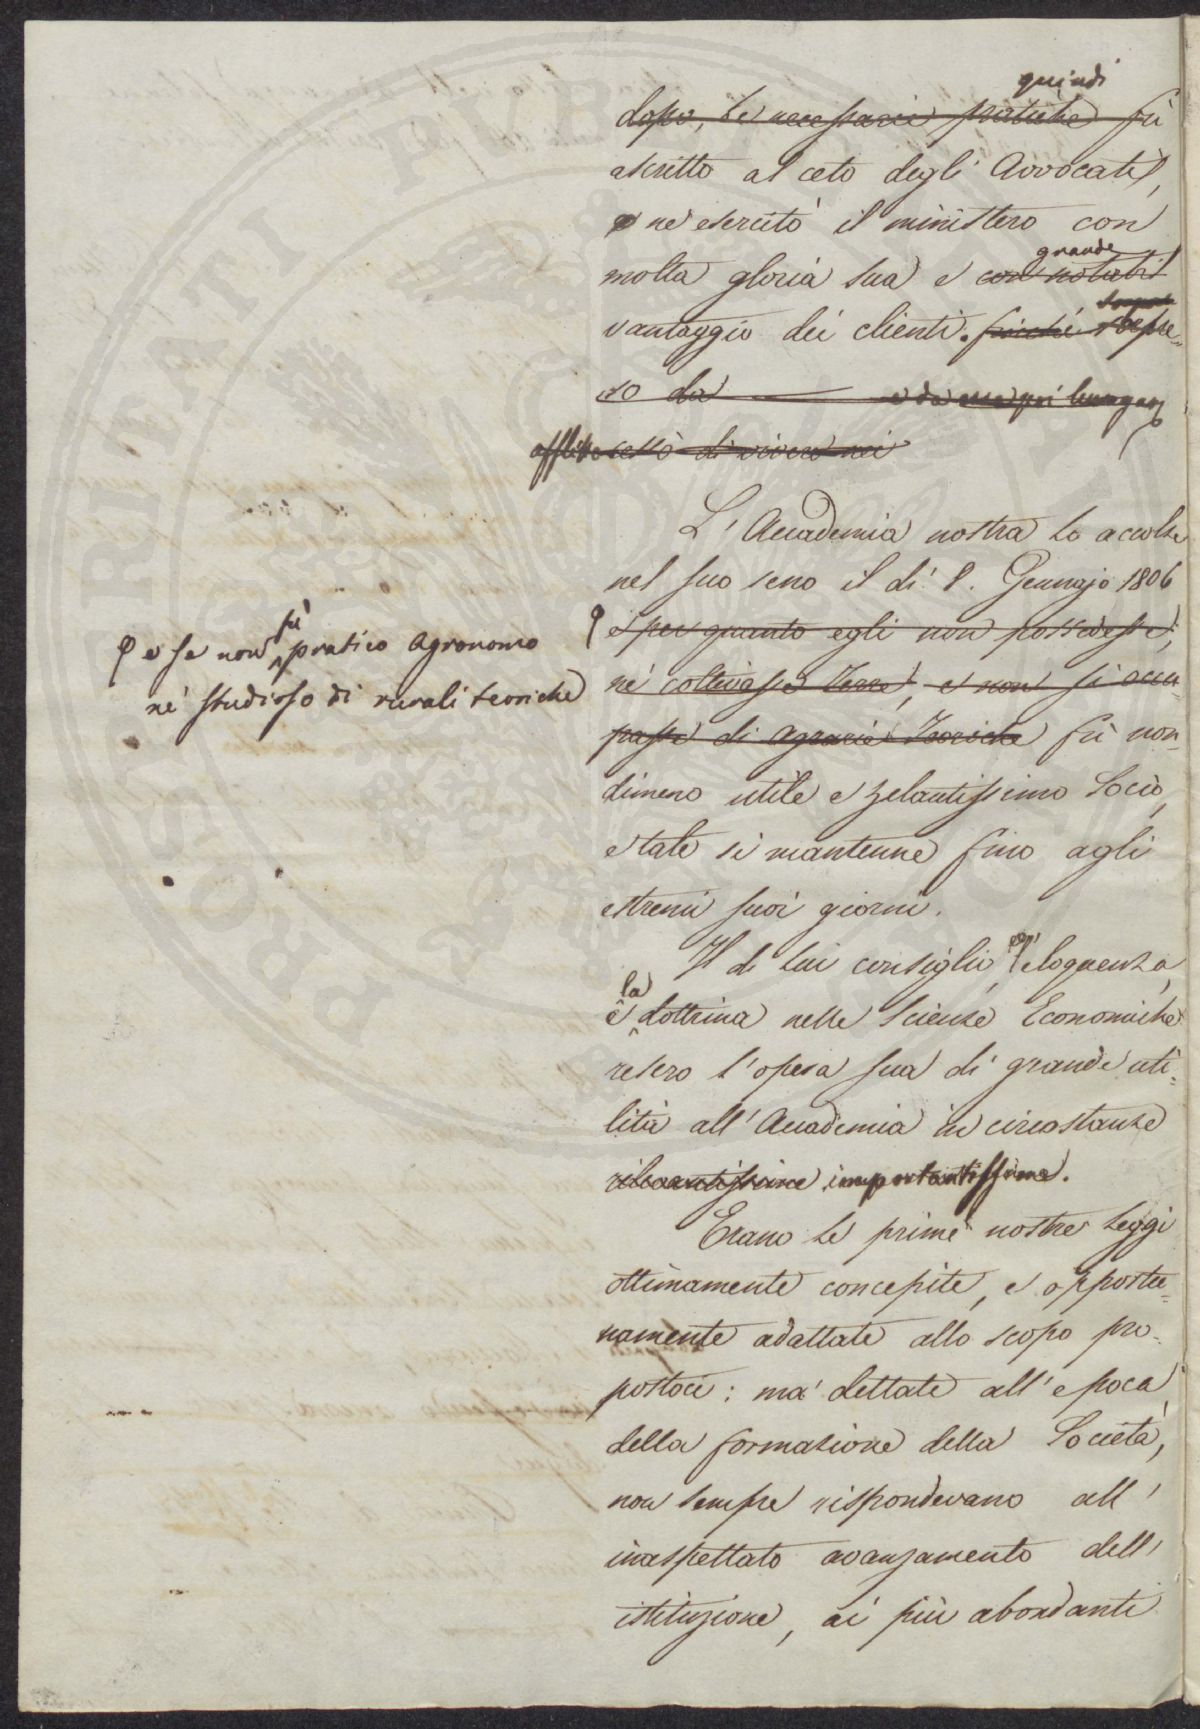 quindi
dopo, le necessarie pratiche fù
ascritto al ceto degli Avvocati,
e ne esercitò il ministero con
grande
molta gloria sua e con notabil
vantaggio dei clienti. finchè sorpre=
so da e da
cessò di vivere nei
L' Accademia nostra lo accolse
nel suo seno il dì 8. Gennajo 1806
e per quanto egli non possedesse,
nè coltivasse Terre, e non si occu=
passe di agrarie Teoriche fù non=
dimeno utile e zelantissimo Socio,
e tale si mantenne fino agli
estremi suoi giorni.
fù
e se non pratico Agronomo
nè studioso di rurali teoriche
Il di lui consiglio, l'eloquenza,
la
e dottrina nelle Scienze Economiche
resero l'opera sua di grande uti=
lità all' Accademia in circostanze
rilevantissime importantissime.
Erano le prime nostre Leggi
ottimamente concepite, e opportu=
namente adattate allo scopo pro=
postoci: ma dettate all' epoca
della formazione della Società,
non sempre rispondevano all'
inaspettato avanzamento dell'
istituzione, ai più abondanti